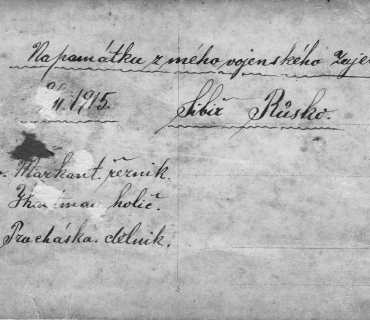 Na památku z mého vojenského Zaje
1915. Sibiř Růsko.
Markant. řezník.
holič.
Procháska. dělník.